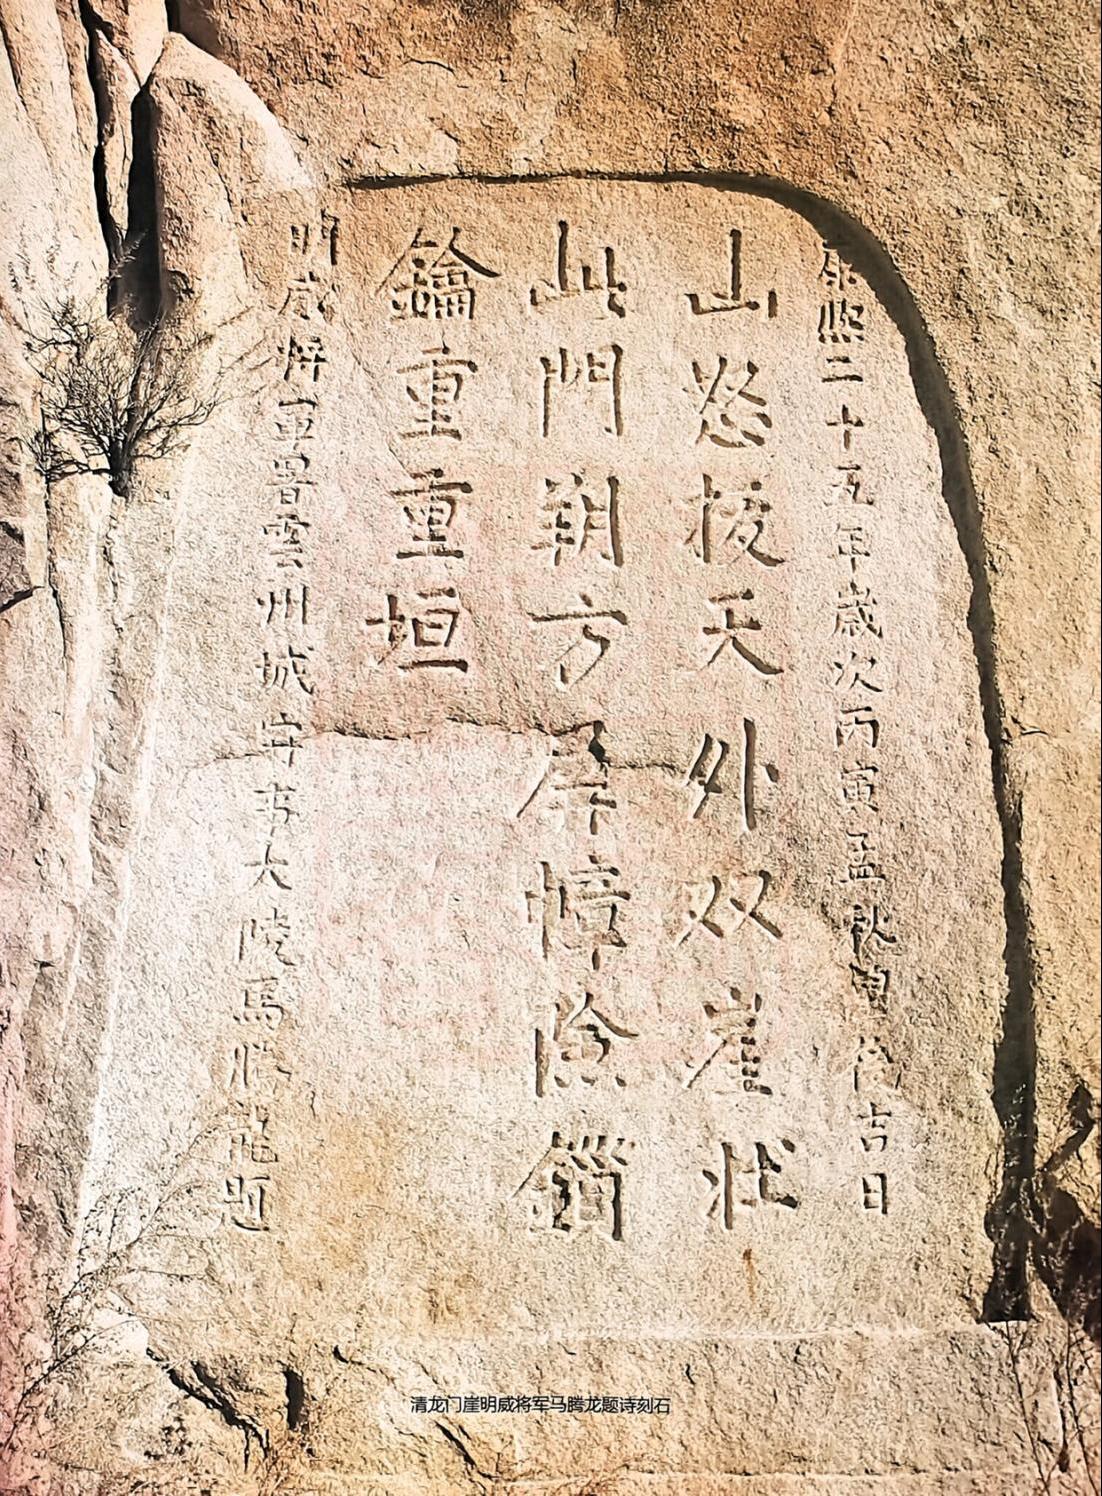 康熙二十五年歲次丙寅孟秋後吉日
山怒拔天外双崖壮
此門朔方屏幛險鎖
鑰重重垣
明威將軍署雲州城守事大陵馬騰龍題
清龙门崖明威将军马腾龙题诗刻石